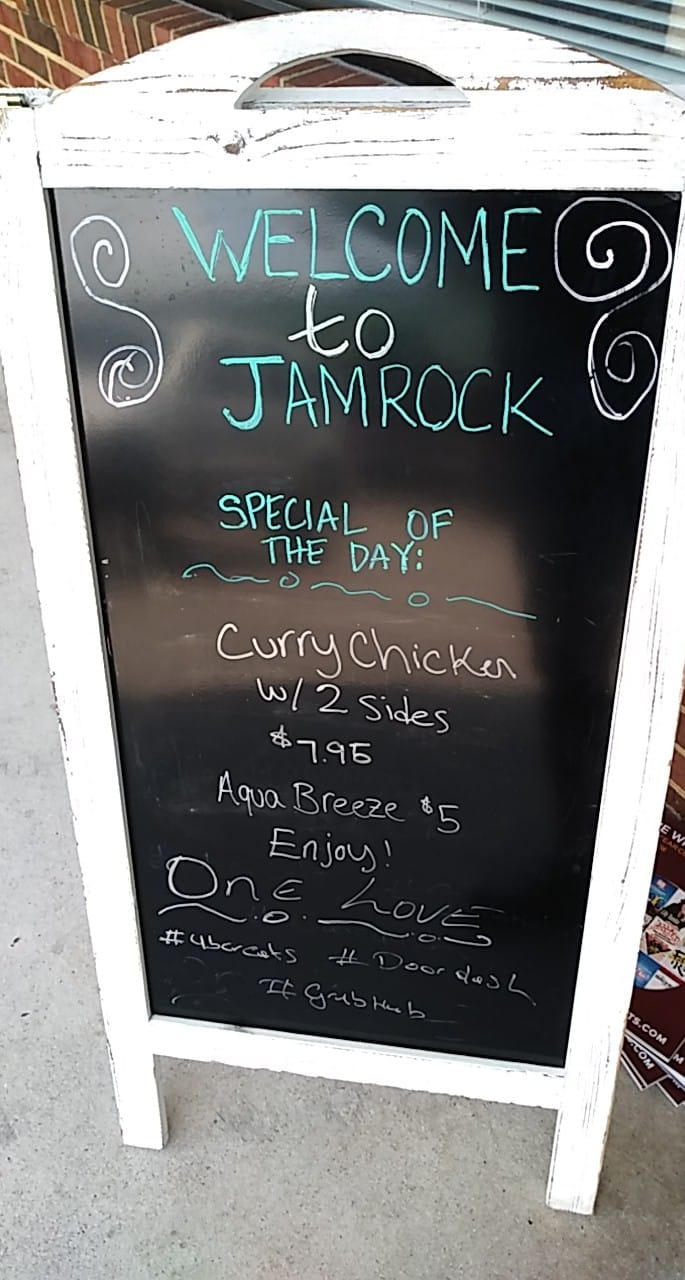 WELCOME
to
JAMROCK
SPECIAL OF
THE DAY:
Curry Chicken
w/ 2 Sides
$7.95
Aqua Breeze $5
Enjoy!
One Love
#ubereats #Doordash
#GrubHub
TS.COM